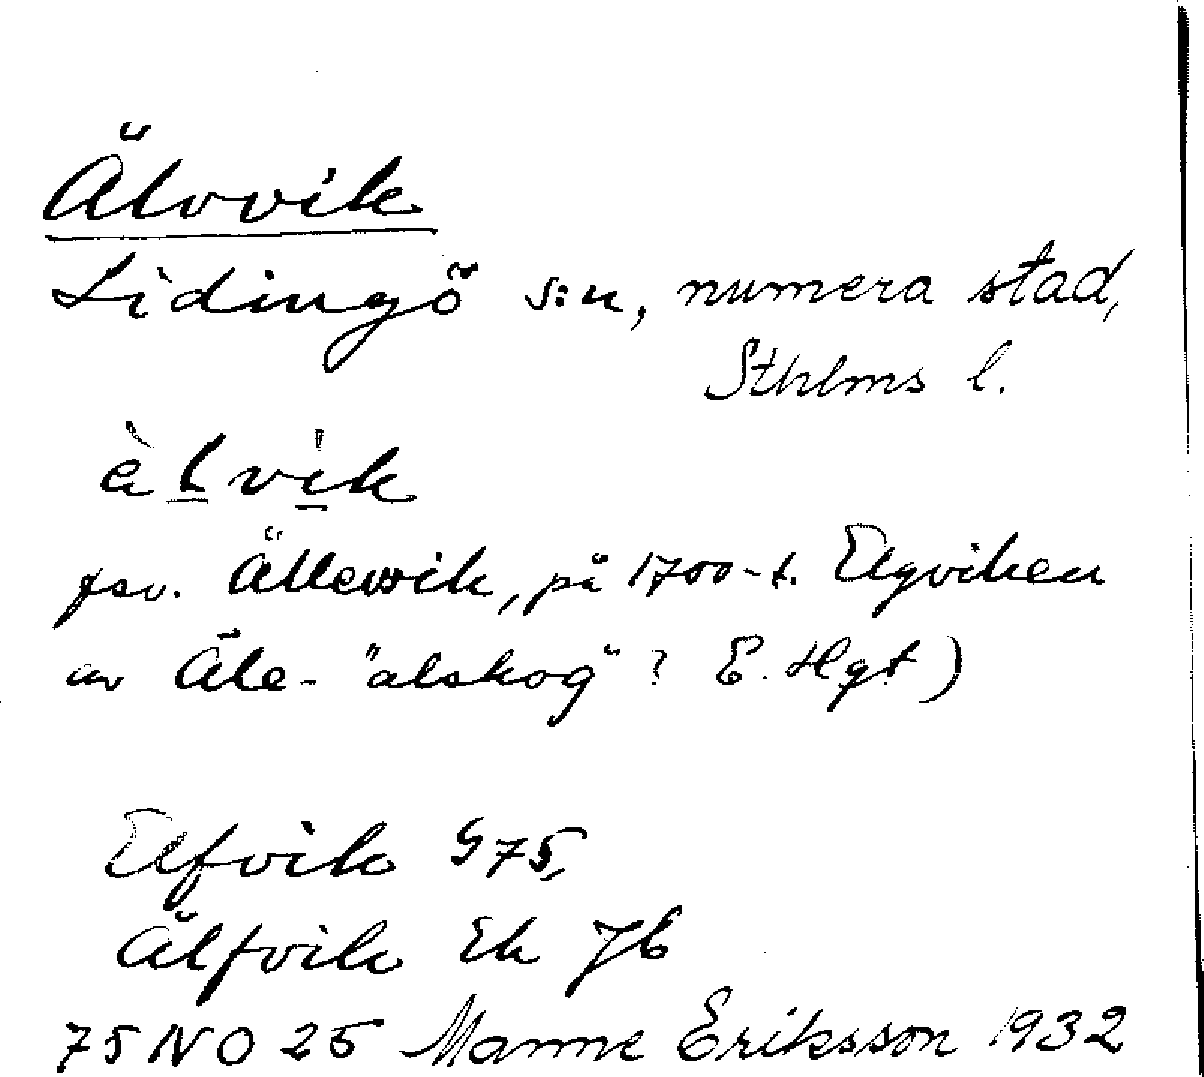 Älvvik
Lidingö s:n, numera stad,
Sthlms l.
èlvik
fsv. Ällewik, på 1700-t. Elgviken
av Äle- "alskog" ? E. Hgt)
Elfvik G 75,
Älfvik Ek JE
75 NO 25 Manne Eriksson 1932